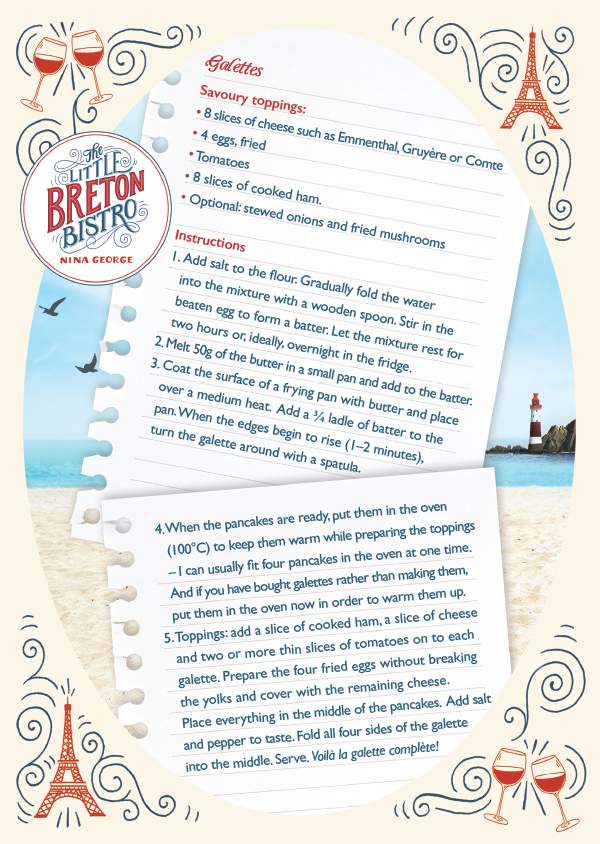 Galettes
Savoury toppings:
• 8 slices of cheese such as Emmenthal, Gruyère or Comte
• 4 eggs, fried
• Tomatoes
• 8 slices of cooked ham.
• Optional: stewed onions and fried mushrooms
The
LITTLE
BRETON
BISTRO
NINA GEORGE
Instructions
1. Add salt to the flour. Gradually fold the water
into the mixture with a wooden spoon. Stir in the
beaten egg to form a batter. Let the mixture rest for
two hours or, ideally, overnight in the fridge.
2. Melt 50g of the butter in a small pan and add to the batter.
3. Coat the surface of a frying pan with butter and place
over a medium heat. Add a ¾ ladle of batter to the
pan. When the edges begin to rise (1–2 minutes),
turn the galette around with a spatula.
4. When the pancakes are ready, put them in the oven
(100°C) to keep them warm while preparing the toppings
– I can usually fit four pancakes in the oven at one time.
And if you have bought galettes rather than making them,
put them in the oven now in order to warm them up.
5. Toppings: add a slice of cooked ham, a slice of cheese
and two or more thin slices of tomatoes on to each
galette. Prepare the four fried eggs without breaking
the yolks and cover with the remaining cheese.
Place everything in the middle of the pancakes. Add salt
and pepper to taste. Fold all four sides of the galette
into the middle. Serve. Voilà la galette complète!